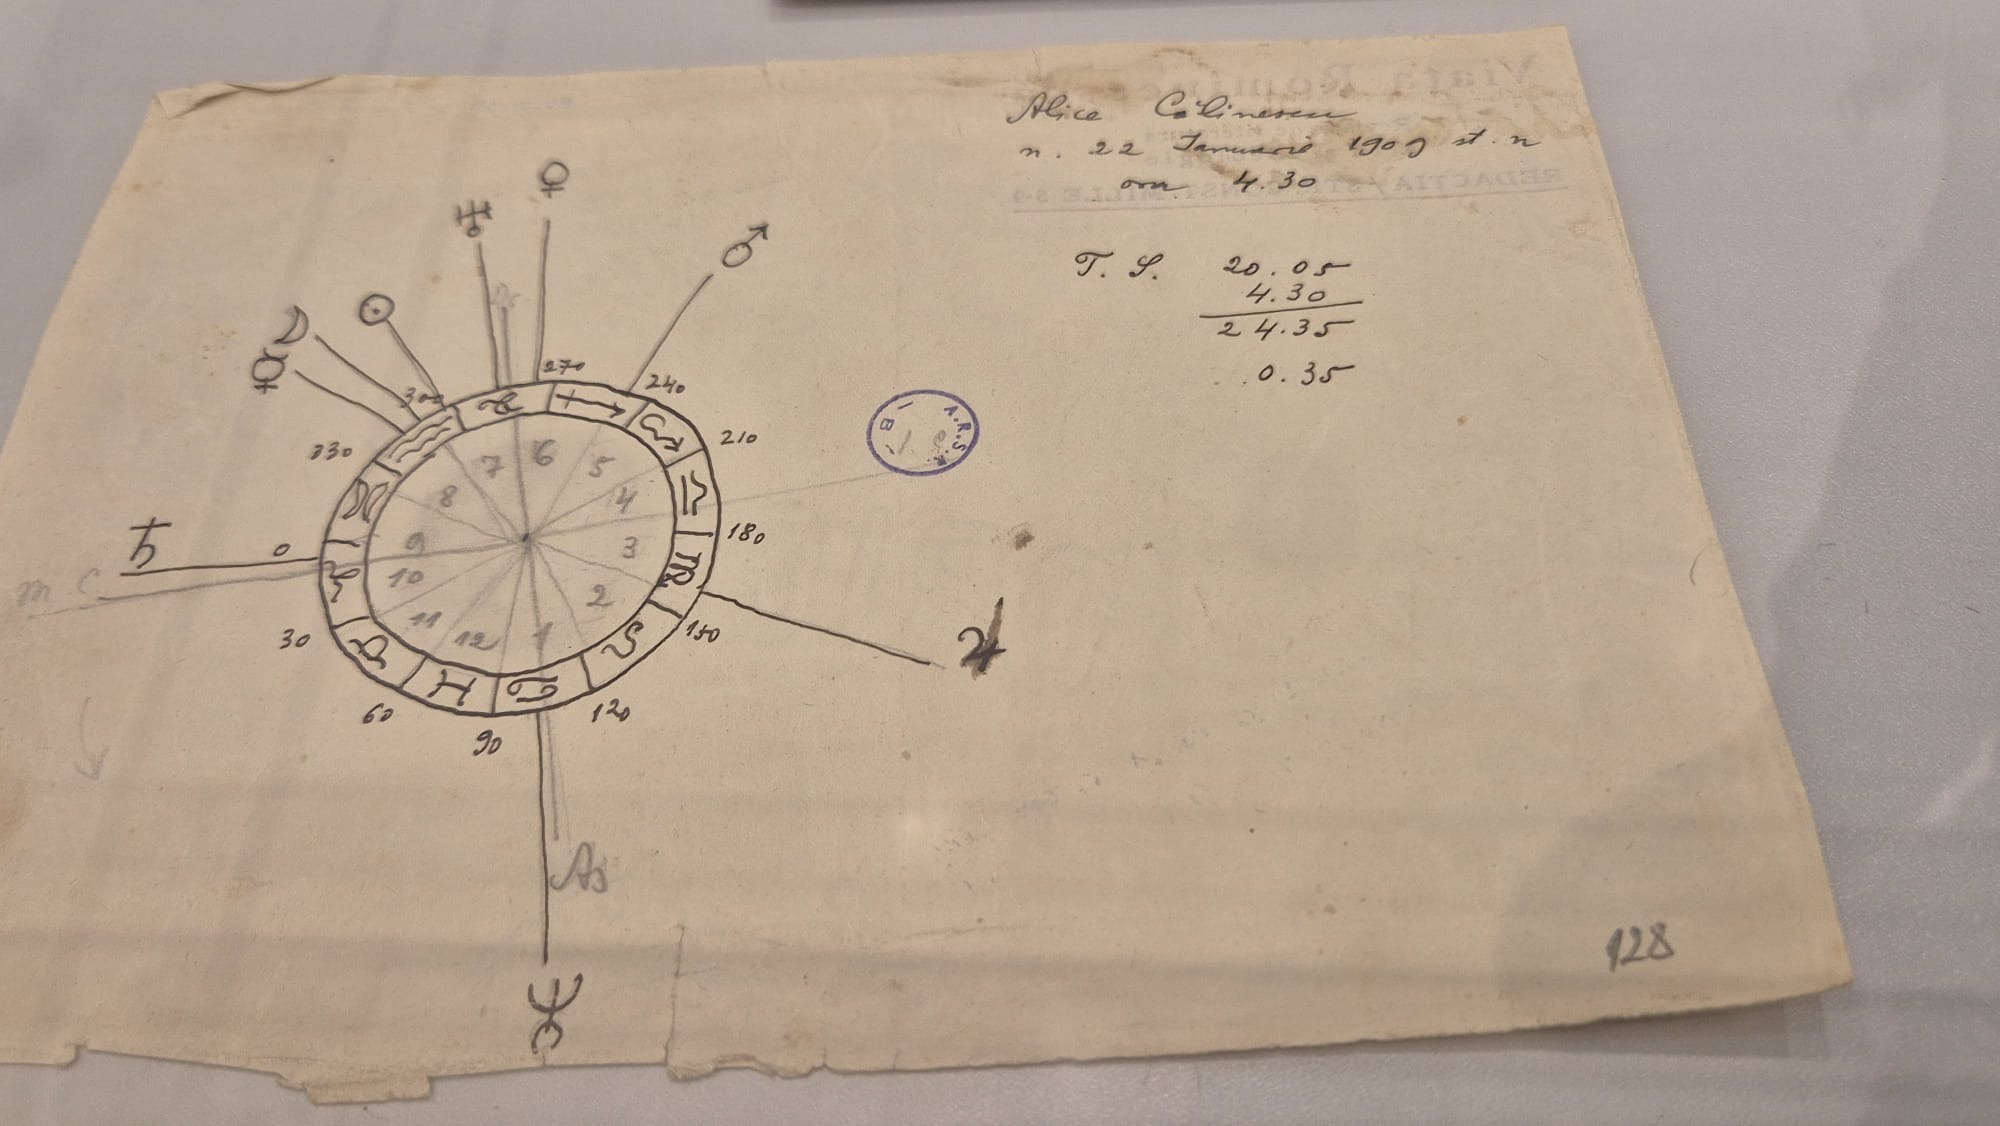 Alice Călinescu
n. 22 Ianuarie 1909 st. n
ora 4.30
T. S. 20.05
4.30
24.35
0.35
270
240
210
180
150
120
90
60
30
0
330
300
1
2
3
4
5
6
7
8
9
10
11
12
Ds
m C
As
A.R.S.R.
B
128